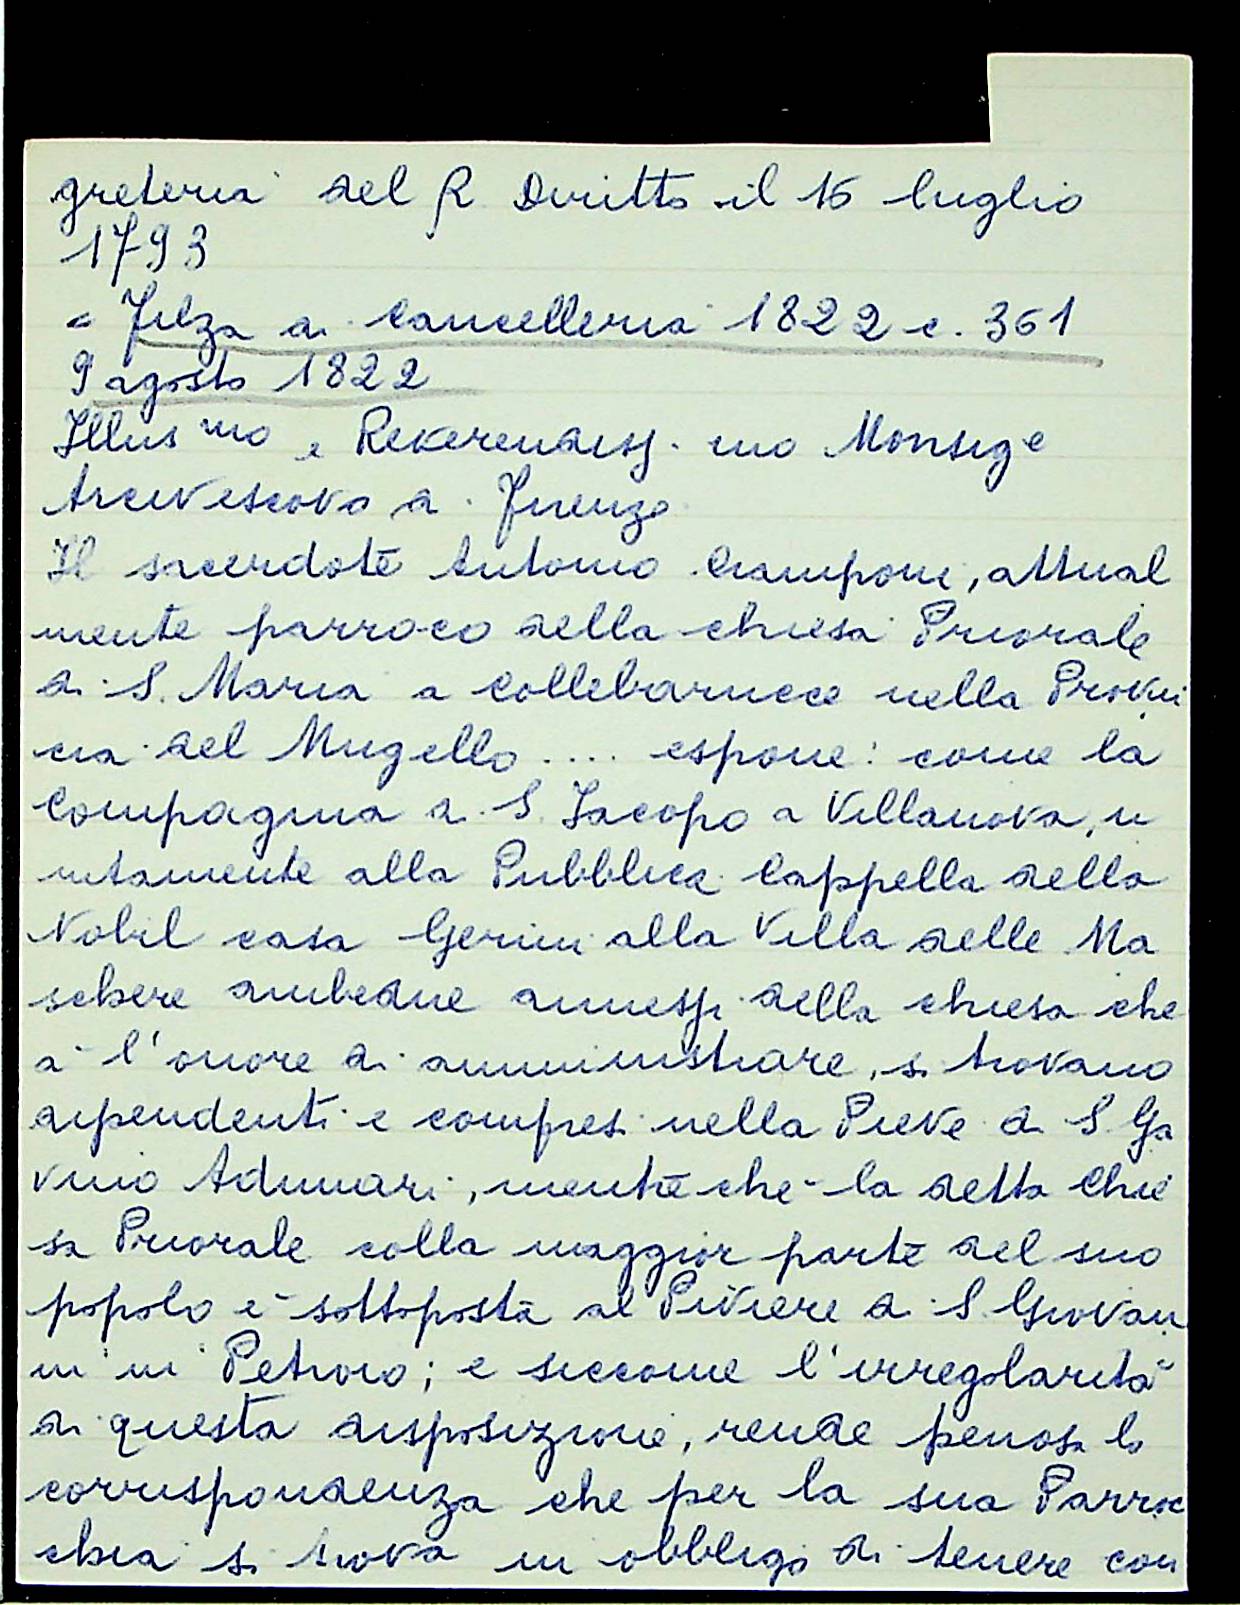 greteria del R Diritto il 16 luglio
1793
= Filza di Cancelleria 1822 c. 361
9 agosto 1822
Illus mo e Reverendiss. mo Monsig e
Arcivescovo di Firenze
Il sacerdote Antonio Ciamponi, attual
mente parroco della chiesa Priorale
di S. Maria a Collebarucce nella Provin
cia del Mugello .... espone: come la
Compagnia di S. Jacopo a Villanova, u
nitamente alla Pubblica Cappella della
Nobil casa Gerini alla Villa delle Ma
schere ambedue annessi della chiesa che
à l'onore di amministrare, si trovano
dipendenti e compresi nella Pieve di S. Ga
vino Adimari, mentre che la detta Chie
sa Priorale colla maggior parte del suo
popolo è sottoposta al Piviere di S. Giovan
ni in Petroio; e siccome l'irregolarità
di questa disposizione, rende penosa la
corrispondenza che per la sua Parroc
chia si trova in obbligo di tenere con